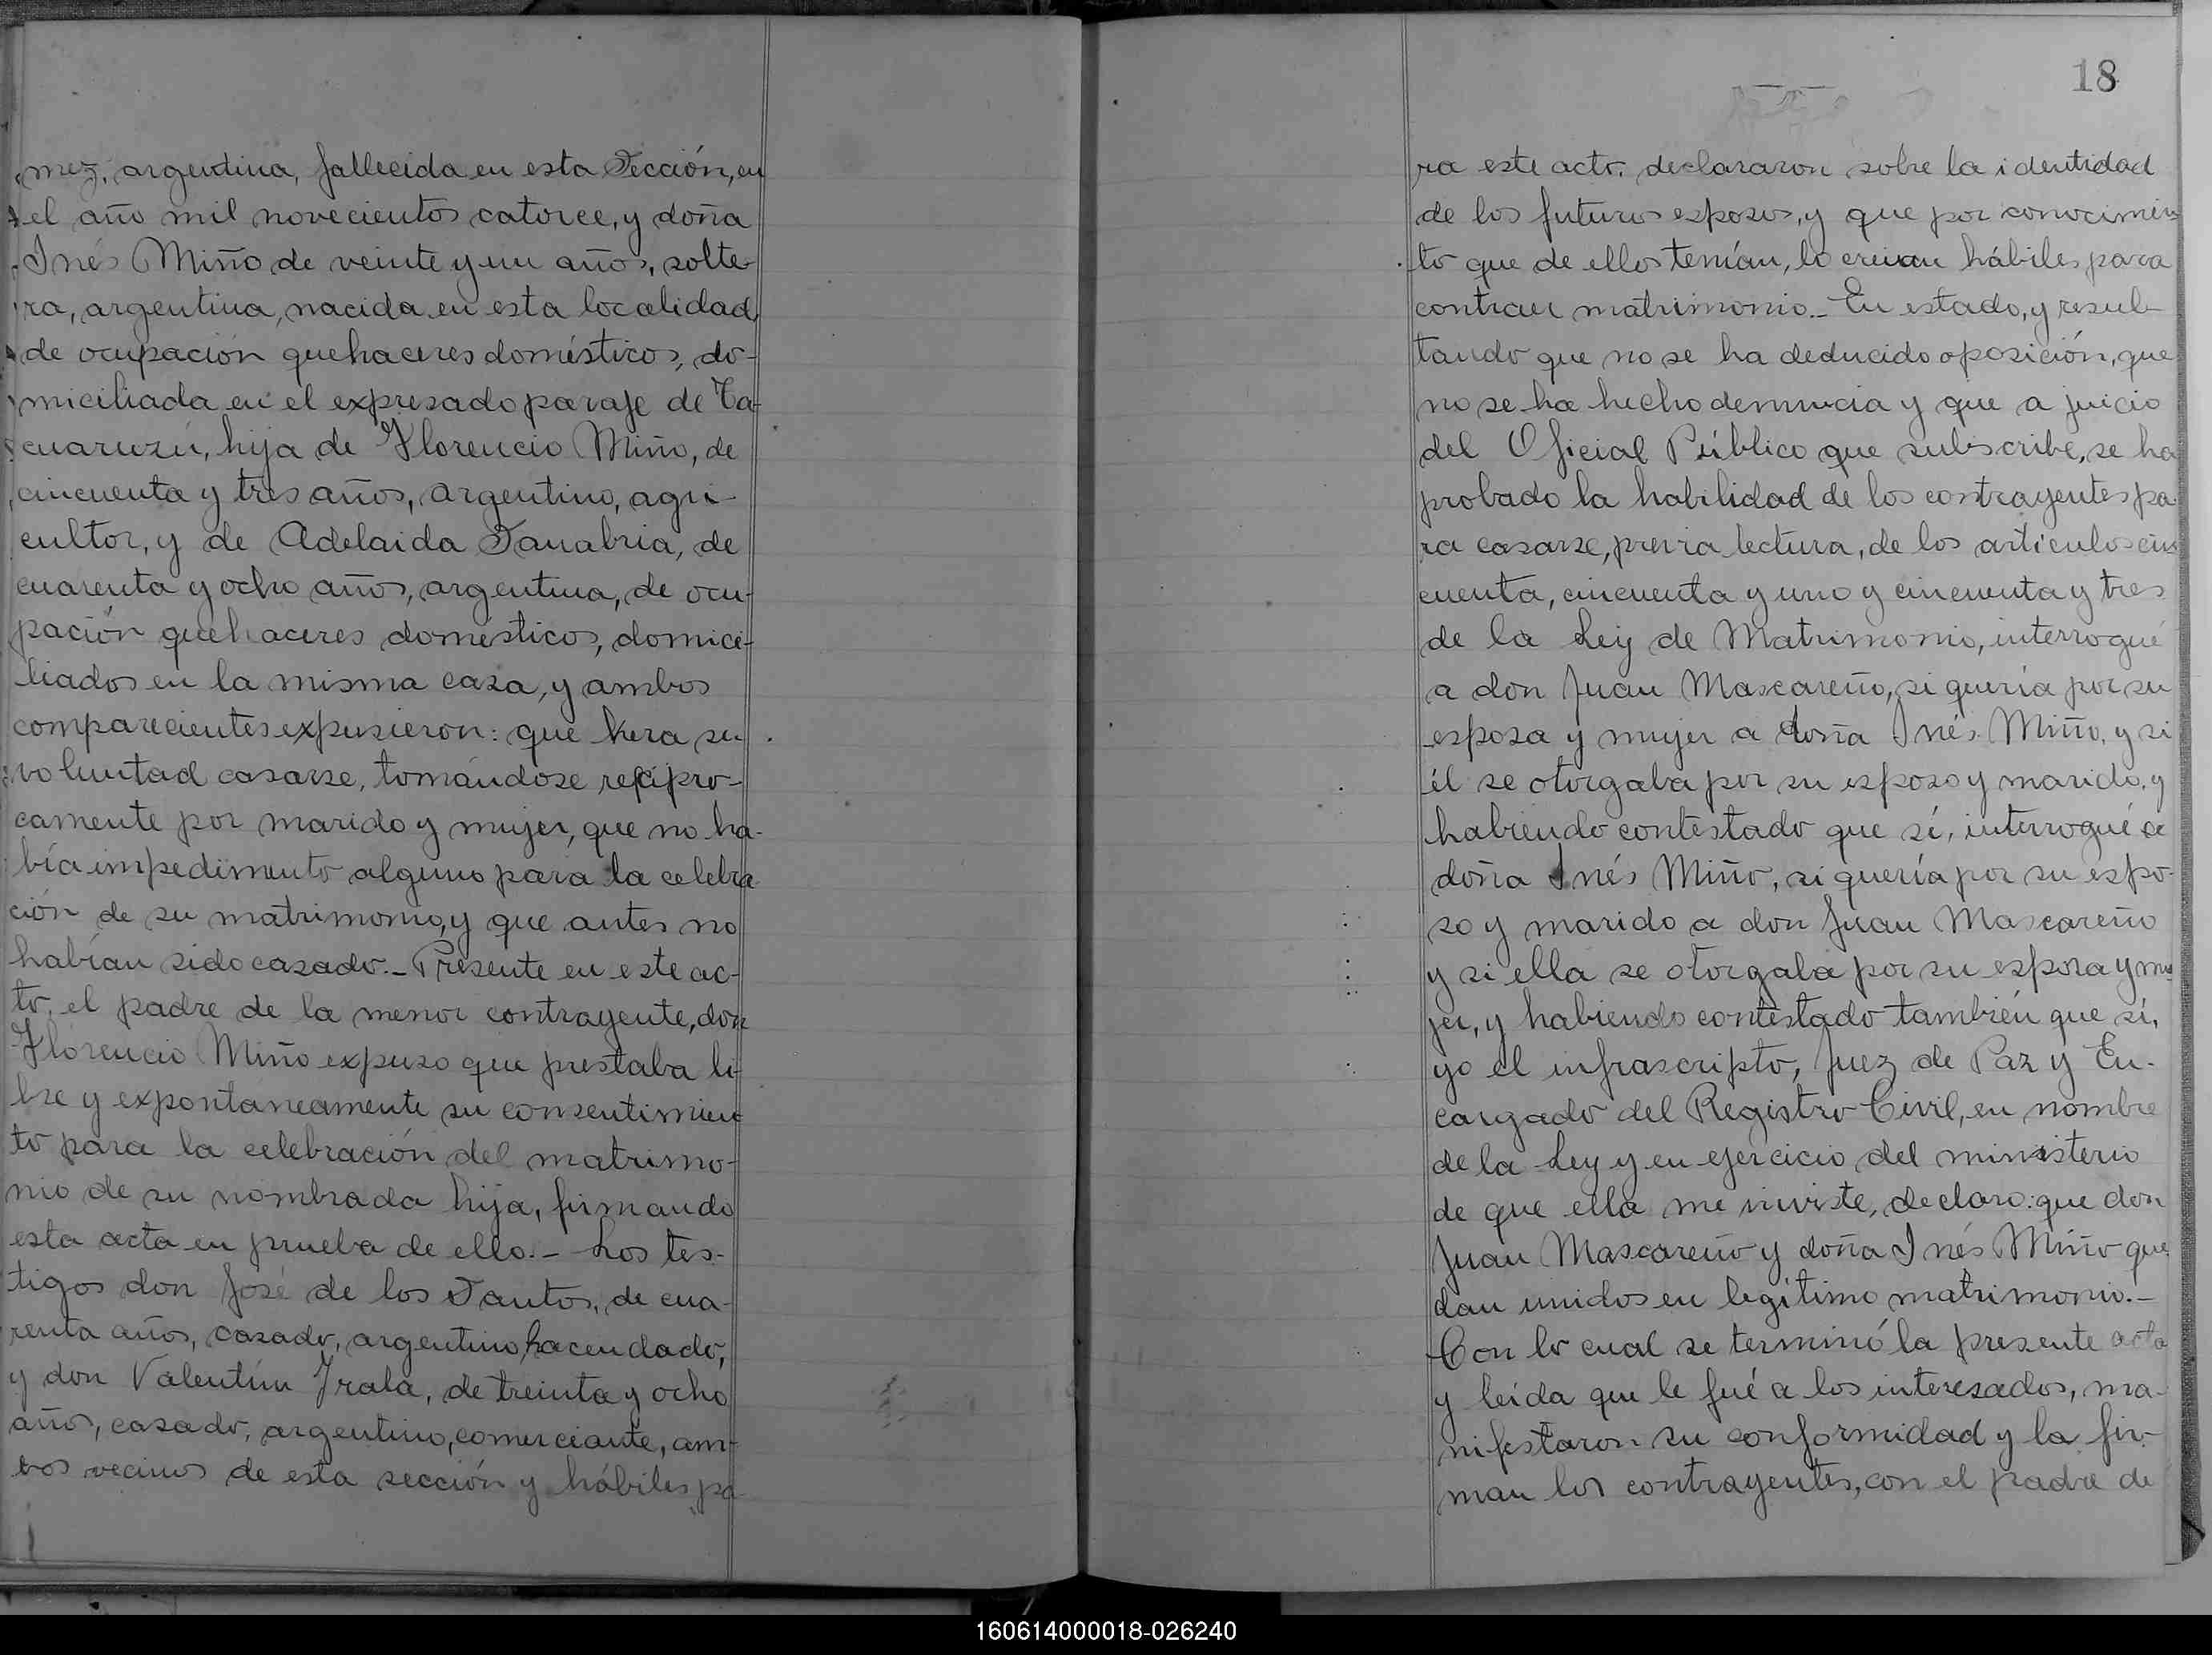 mez, argentina, fallecida en esta Sección, en
el año mil novecientos catorce, y doña
Inés Miño de veinte y un años, solte-
ra, argentina, nacida en esta localidad,
de ocupación quehaceres domésticos, do-
miciliada en el expresado paraje de Ta-
cuaruzú, hija de Florencio Miño, de
cincuenta y tres años, argentino, agri-
cultor, y de Adelaida Sanabria, de
cuarenta y ocho años, argentina, de ocu-
pación quehaceres domésticos, domici-
liados en la misma casa, y ambos
comparecientes expusieron: que hera su
voluntad casarse, tomándose recípro-
camente por marido y mujer, que no ha-
bía impedimento alguno para la celebra
ción de su matrimonio, y que antes no
habían sido casado.- Presente en este ac-
to, el padre de la menor contrayente, don
Florencio Miño expuso que prestaba li-
bre y expontáneamente su consentimien
to para la celebración del matrimo-
nio de su nombrada hija, firmando
esta acta en prueba de ello.- Los tes-
tigos don José de los Santos, de cua-
renta años, casado, argentino, hacendado,
y don Valentín Irala, de treinta y ocho
años, casado, argentino, comerciante, am-
bos vecinos de esta sección y hábiles pa-
18
ra este acto, declararon sobre la identidad
de los futuros esposos, y que por conocimien
to que de ellos tenían, lo creian hábiles para
contraer matrimonio.- En estado, y resul-
tando que no se ha deducido oposición, que
no se ha hecho denuncia y que a juicio
del Oficial Público que subscribe, se ha
probado la habilidad de los contrayentes pa
ra casarse, previa lectura, de los artículos cin
cuenta, cincuenta y uno y cincuenta y tres
de la Ley de Matrimonio, interrogué
a don Juan Mascareño, si quería por su
esposa y mujer a doña Inés Miño, y si
él se otorgaba por su esposo y marido, y
habiendo contestado que sí, interrogué a
doña Inés Miño, si quería por su espo-
so y marido a don Juan Mascareño
y si ella se otorgaba por su esposa y mu
jer, y habiendo contestado también que sí,
yo el infrascripto, Juez de Paz y En-
cargado del Registro Civil, en nombre
de la Ley y en ejercicio del ministerio
de que ella me inviste, declaro: que don
Juan Mascareño y doña Inés Miño que
dan unidos en legítimo matrimonio.-
Con lo cual se terminó la presente acta
y leída que le fué a los interesados, ma-
nifestaron su conformidad y la fir-
man los contrayentes, con el padre de
160614000018-026240